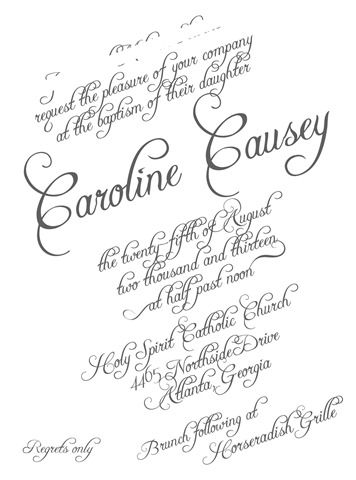 request the pleasure of your company
at the baptism of their daughter
Caroline Causey
the twenty fifth of August
two thousand and thirteen
at half past noon
Holy Spirit Catholic Church
4465 Northside Drive
Atlanta, Georgia
Regrets only
Brunch following at
Horseradish Grille